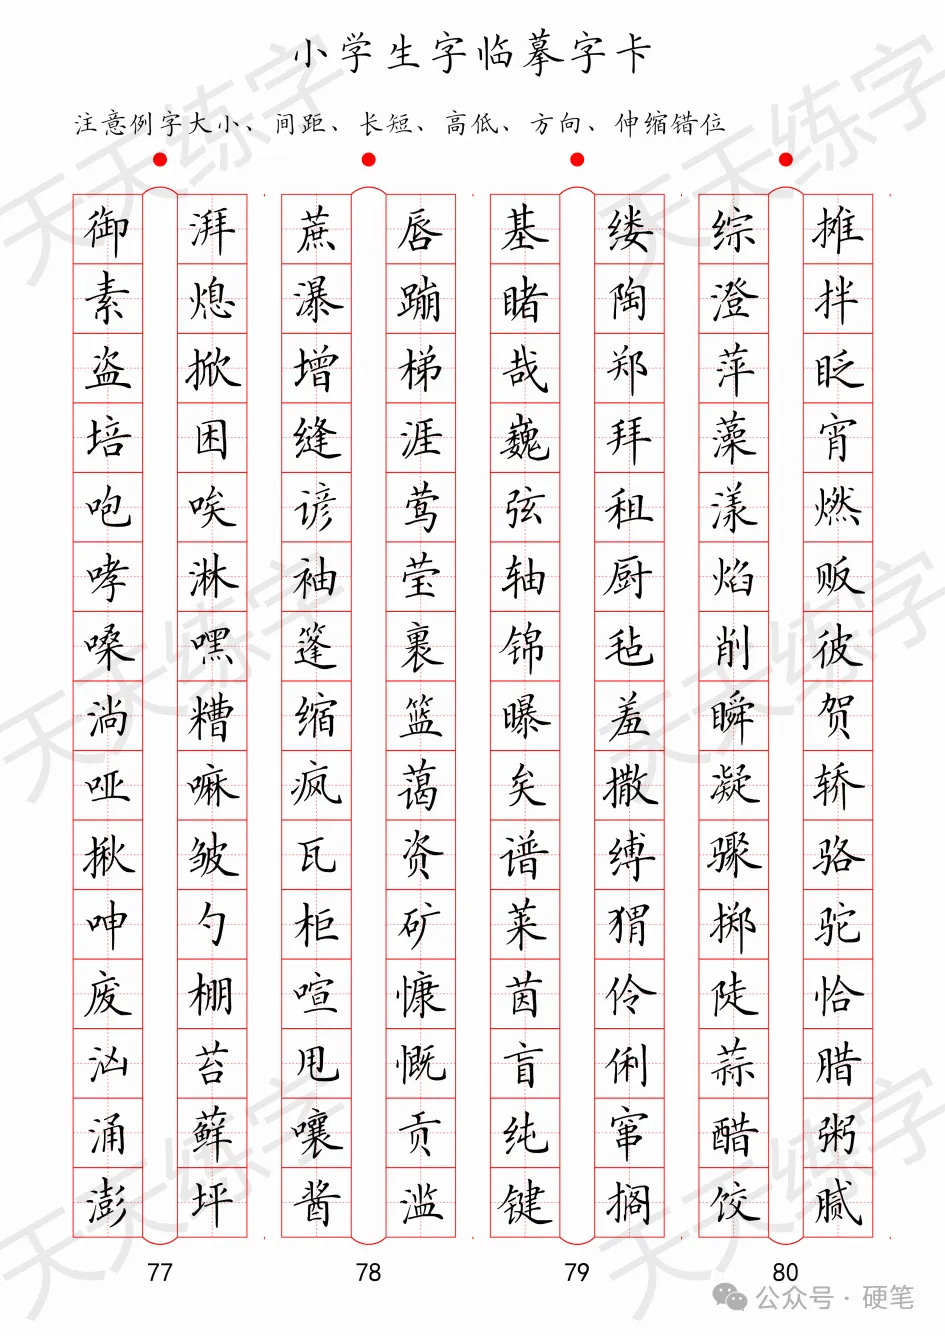 小学生字临摹字卡
注意例字大小、间距、长短、高低、方向、伸缩错位
御 湃 蔗 唇 基 缕 综 摊
素 熄 瀑 蹦 睹 陶 澄 拌
盗 掀 增 梯 哉 郑 萍 眨
培 困 缝 涯 巍 拜 藻 宵
咆 唉 谚 莺 弦 租 漾 燃
哮 淋 袖 莹 轴 厨 焰 贩
嗓 嘿 篷 裹 锦 毡 削 彼
淌 糟 缩 篮 曝 羞 瞬 贺
哑 嘛 疯 蔼 矣 撒 凝 轿
揪 皱 瓦 资 谱 缚 骤 骆
呻 勺 柜 矿 莱 猬 掷 驼
废 棚 喧 慷 茵 伶 陡 恰
汹 苔 甩 慨 盲 俐 蒜 腊
涌 藓 嚷 贡 纯 窜 醋 粥
澎 坪 酱 滥 键 搁 饺 腻
77 78 79 80
公众号·硬笔
天天练字
天天练字
天天练字
天天练字
天天练字
天天练字